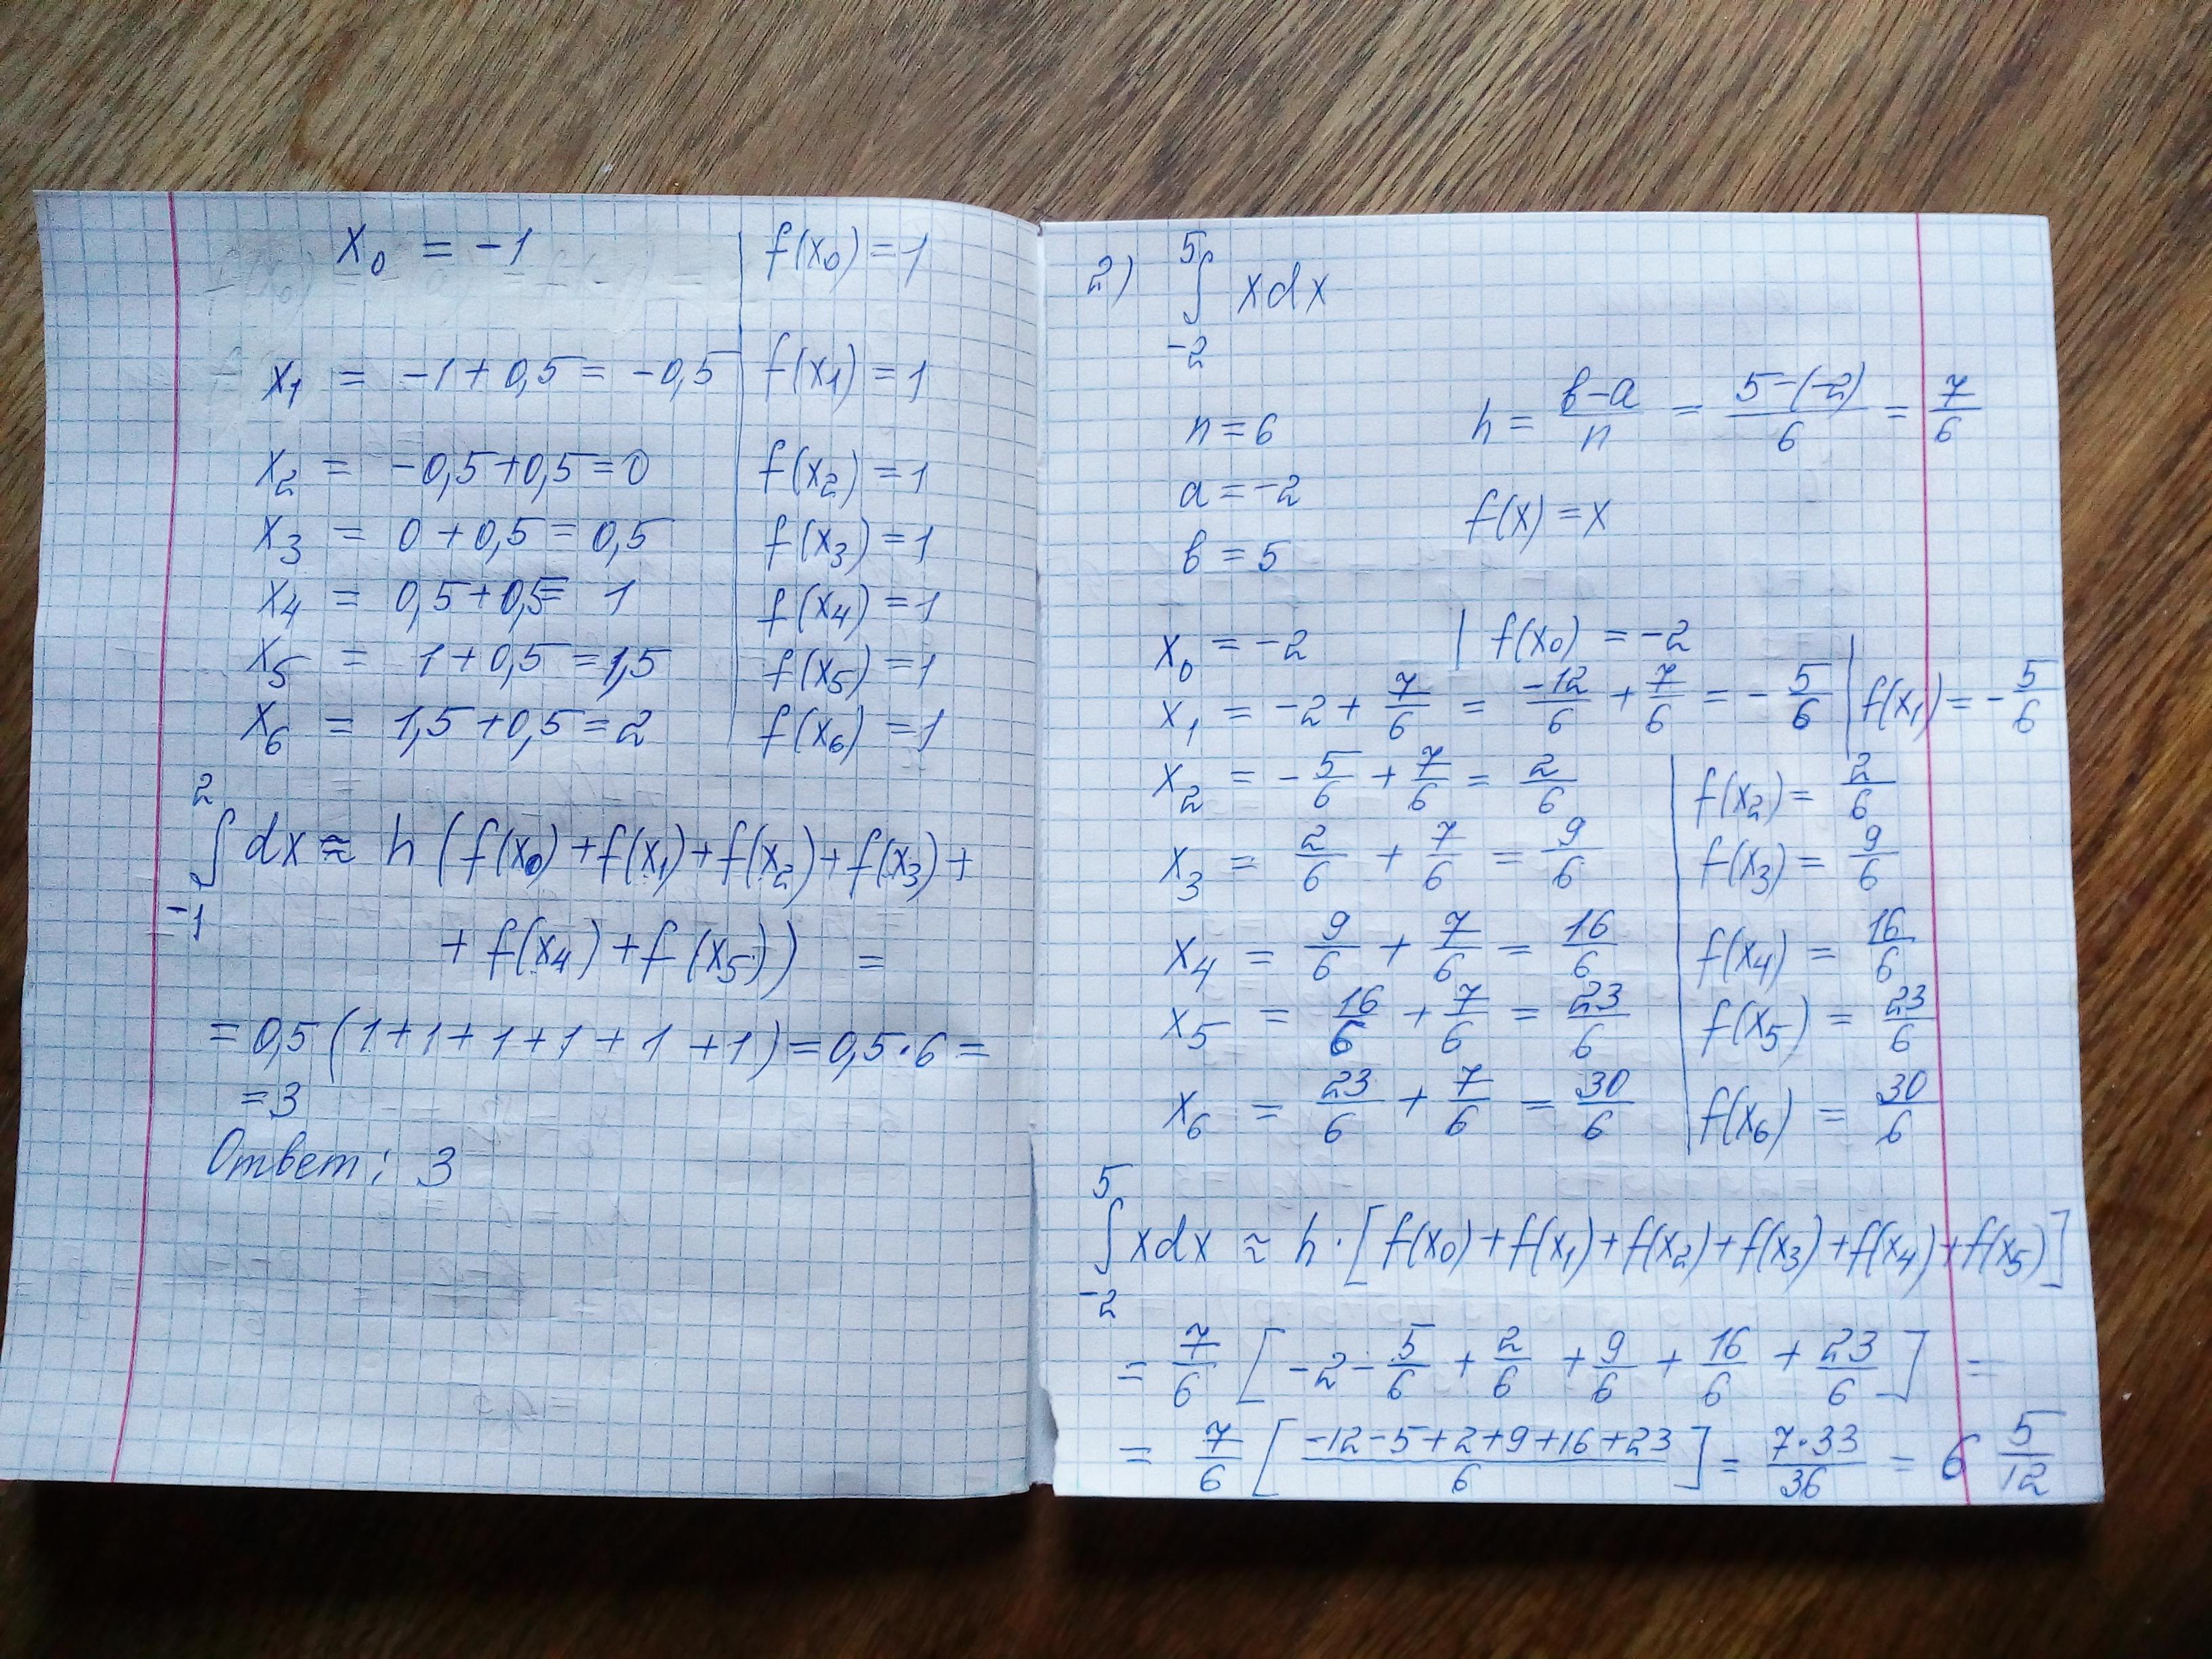 x₀ = -1 | f(x₀) = 1
x₁ = -1 + 0,5 = -0,5 | f(x₁) = 1
x₂ = -0,5 + 0,5 = 0 | f(x₂) = 1
x₃ = 0 + 0,5 = 0,5 | f(x₃) = 1
x₄ = 0,5 + 0,5 = 1 | f(x₄) = 1
x₅ = 1 + 0,5 = 1,5 | f(x₅) = 1
x₆ = 1,5 + 0,5 = 2 | f(x₆) = 1
∫₋₁² dx ≈ h (f(x₀) + f(x₁) + f(x₂) + f(x₃) +
+ f(x₄) + f(x₅)) =
= 0,5 (1 + 1 + 1 + 1 + 1 + 1) = 0,5 · 6 =
= 3
Ответ: 3
2) ∫₋₂⁵ x dx
n = 6 h = (b-a)/n = (5-(-2))/6 = 7/6
a = -2 f(x) = x
b = 5
x₀ = -2 | f(x₀) = -2
x₁ = -2 + 7/6 = -12/6 + 7/6 = -5/6 | f(x₁) = -5/6
x₂ = -5/6 + 7/6 = 2/6 | f(x₂) = 2/6
x₃ = 2/6 + 7/6 = 9/6 | f(x₃) = 9/6
x₄ = 9/6 + 7/6 = 16/6 | f(x₄) = 16/6
x₅ = 16/6 + 7/6 = 23/6 | f(x₅) = 23/6
x₆ = 23/6 + 7/6 = 30/6 | f(x₆) = 30/6
∫₋₂⁵ x dx ≈ h · [f(x₀) + f(x₁) + f(x₂) + f(x₃) + f(x₄) + f(x₅)]
= 7/6 [-2 - 5/6 + 2/6 + 9/6 + 16/6 + 23/6] =
= 7/6 [(-12-5+2+9+16+23)/6] = (7·33)/36 = 6 5/12